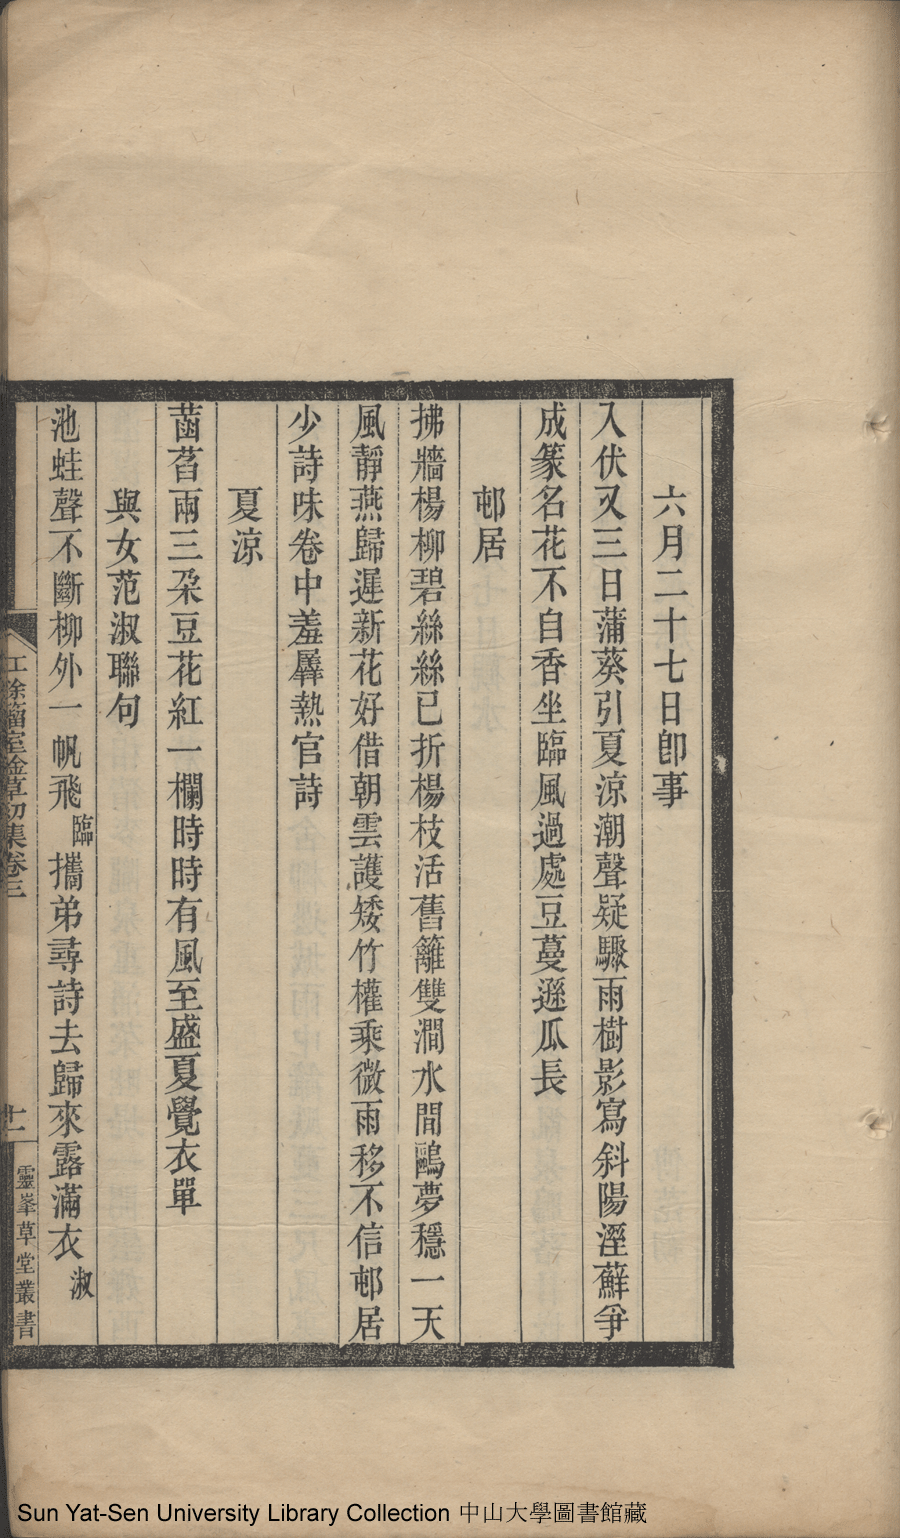 六月二十七日卽事
入伏又三日蒲葵引夏涼潮聲疑驟雨樹影寫斜陽溼蘚爭
成篆名花不自香坐臨風過處豆蔓遜瓜長
邨居
拂牆楊柳碧絲絲已折楊枝活舊籬雙澗水間鷗夢穩一天
風靜燕歸遲新花好借朝雲護矮竹權乘微雨移不信邨居
少詩味卷中羞羼熱官詩
夏涼
菡萏兩三朶豆花紅一欄時時有風至盛夏覺衣單
與女范淑聯句
池蛙聲不斷柳外一帆飛臨攜弟尋詩去歸來露滿衣淑
餘籀室唫草初集卷三
十一
靈峯草堂叢書
Sun Yat-Sen University Library Collection 中山大學圖書館藏